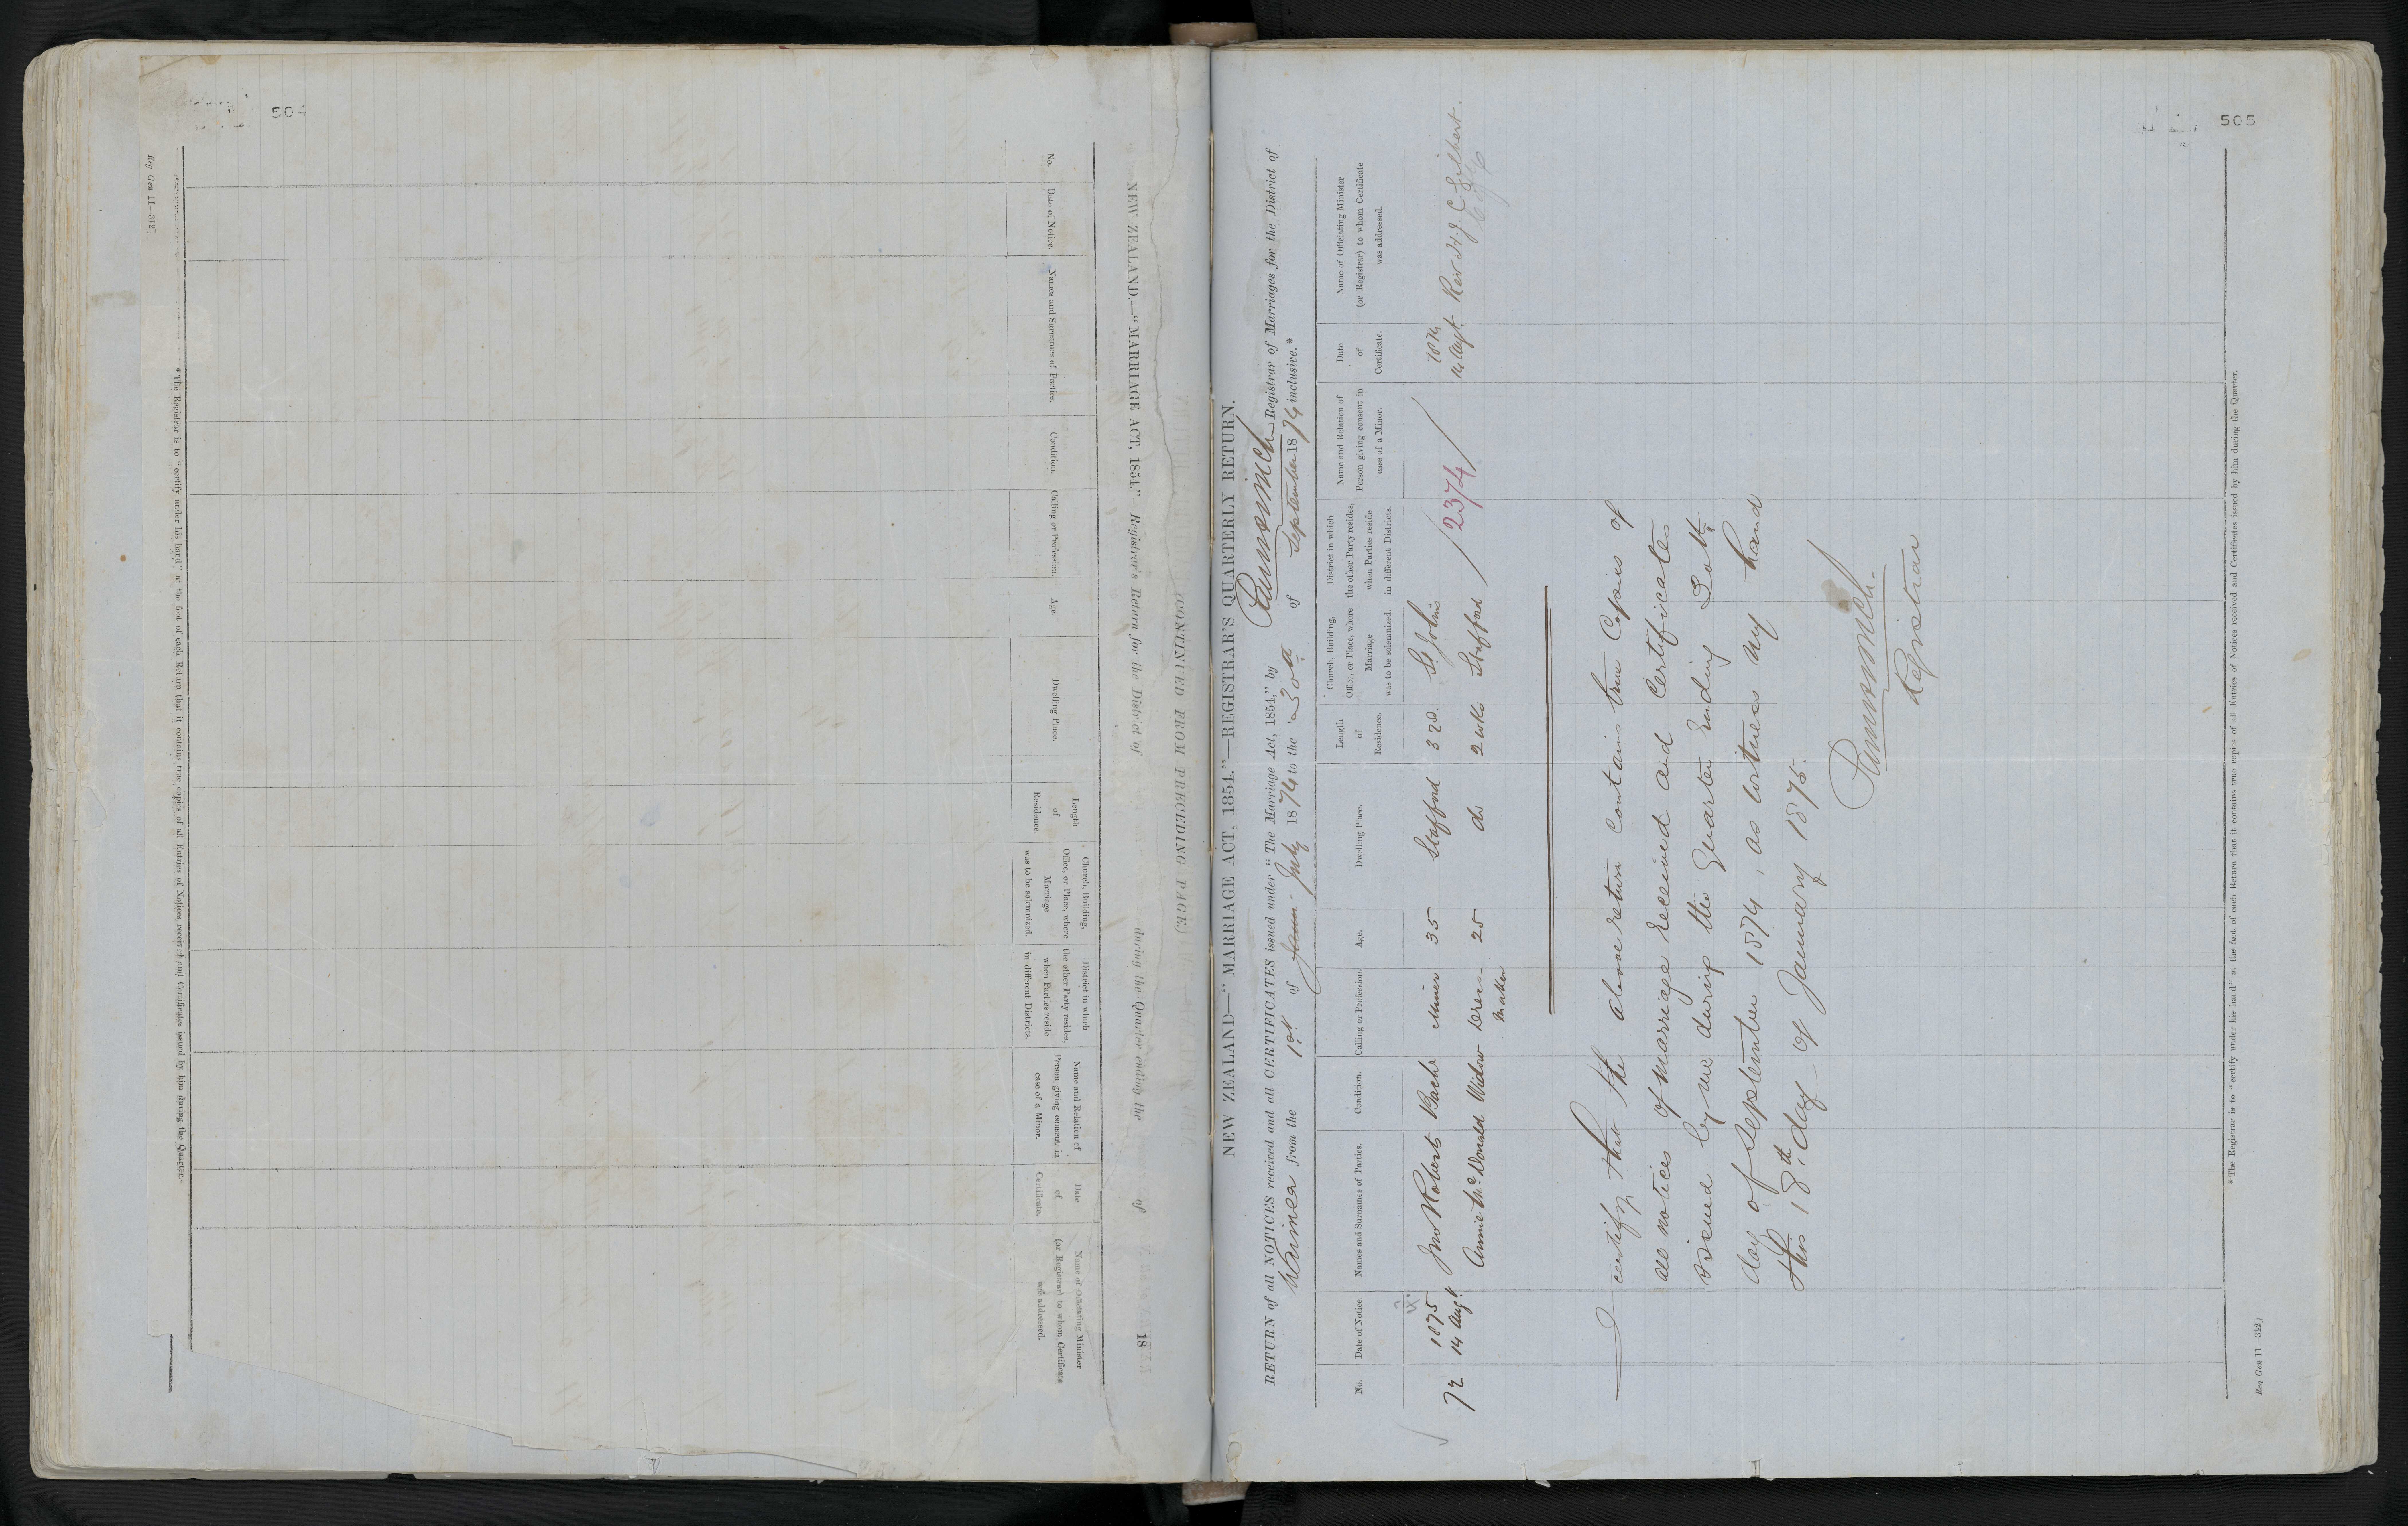 504
Reg Gen 11—312]
NEW ZEALAND.—"MARRIAGE ACT, 1854."—Registrar's Return for the District of during the Quarter ending the of 18
(CONTINUED FROM PRECEDING PAGE.)
No.
Date of Notice.
Names and Surnames of Parties.
Condition.
Calling or Profession.
Age.
Dwelling Place.
Length
of
Residence.
Church, Building,
Office, or Place, where
Marriage
was to be solemnized.
District in which
the other Party resides,
when Parties reside
in different Districts.
Name and Relation of
Person giving consent in
case of a Minor.
Date
of
Certificate.
Name of Officiating Minister
(or Registrar) to whom Certificate
was addressed.
*The Registrar is to "certify under his hand" at the foot of each Return that it contains true copies of all Entries of Notices received and Certificates issued by him during the Quarter.
505
NEW ZEALAND—"MARRIAGE ACT, 1854."—REGISTRAR'S QUARTERLY RETURN.
RETURN of all NOTICES received and all CERTIFICATES issued under "The Marriage Act, 1854," by Registrar of Marriages for the District of
Waimea from the 1st of July 1874 to the 30th of September 1874 inclusive.*
No.
Date of Notice.
Names and Surnames of Parties.
Condition.
Calling or Profession.
Age.
Dwelling Place.
Length
of
Residence.
Church, Building,
Office, or Place, where
Marriage
was to be solemnized.
District in which
the other Party resides,
when Parties reside
in different Districts.
Name and Relation of
Person giving consent in
case of a Minor.
Date
of
Certificate.
Name of Officiating Minister
(or Registrar) to whom Certificate
was addressed.
72
1875
14 Augt
Jno Robert Bachr Miner 35 Stafford St John
Annie McDonald Widow Dress- 25 do 2 wks Stafford
maker
2374
1874
14 Augt
Rev H. J. C. Gilbert.
I certify that the above return contains true Copies of
all notices of Marriage received and Certificates
issued by me during the Quarter Ending 30th
day of September 1874, as witness my hand
this 18th day of January 1875.
Registrar
*The Registrar is to "certify under his hand" at the foot of each Return that it contains true copies of all Entries of Notices received and Certificates issued by him during the Quarter.
Reg Gen 11—312]